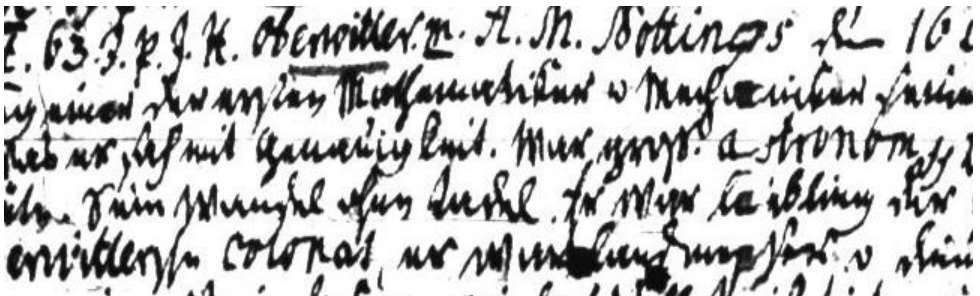 63. J. p. J. H. Oberwitler. m. A. M. Nottings den 16
einer der ersten Mathematiker u Mechaniker seiner
er sah mit Genauigkeit. War groß. Astronom
Sein Wandel ohne Tadel. Er war Liebling der
erwittlersche Colonat, er war Landmesser u